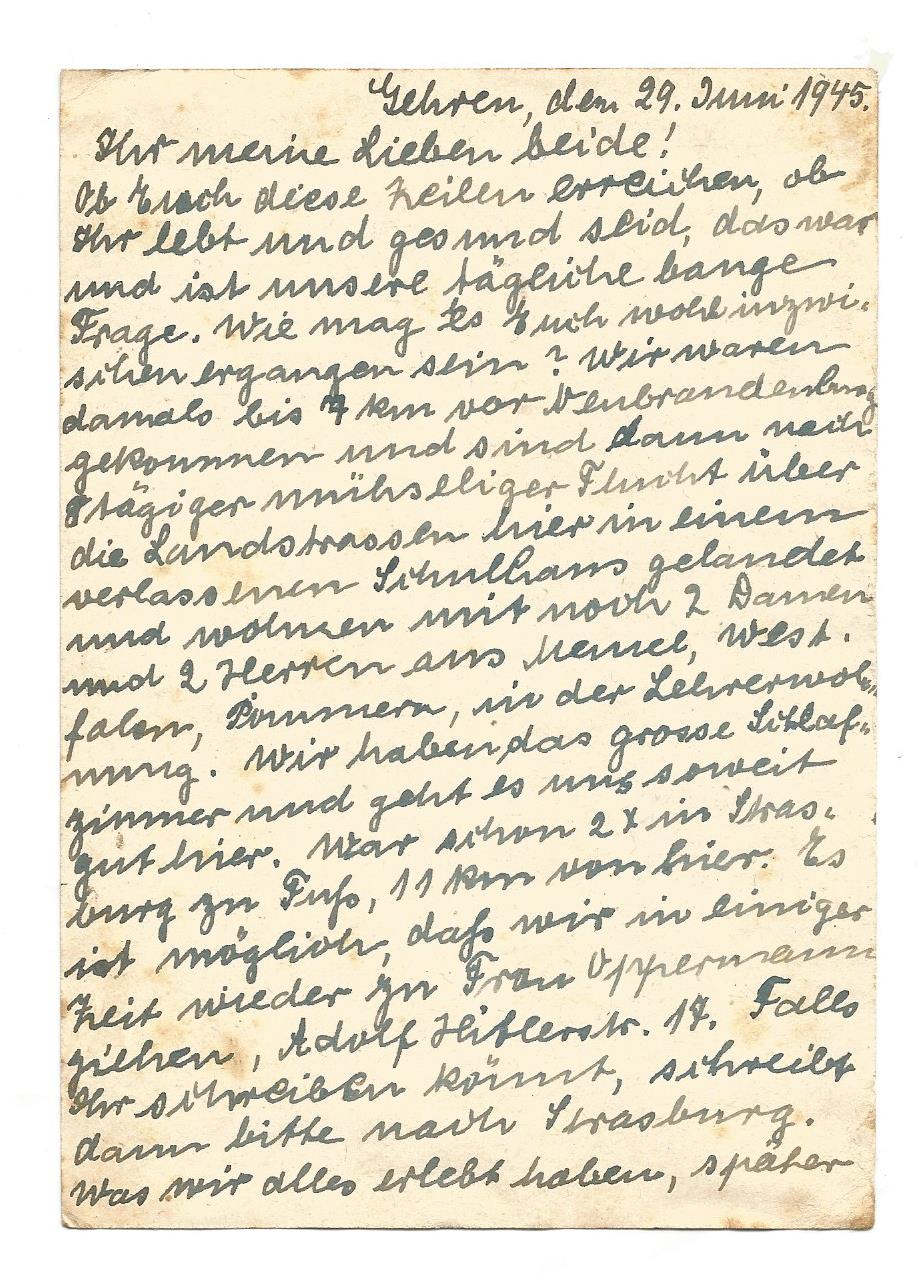 Gehren, den 29. Juni 1945.
Ihr meine Lieben beide!
Ob Euch diese Zeilen erreichen, ob
Ihr lebt und gesund seid, das war
und ist unsere tägliche bange
Frage. Wie mag es Euch wohl inzwi-
schen ergangen sein? Wir waren
damals bis 7 km vor Neubrandenburg
gekommen und sind dann nach
8tägiger mühseliger Flucht über
die Landstrassen hier in einem
verlassenen Schulhaus gelandet
und wohnen mit noch 2 Damen
und 2 Herren aus Memel, West-
falen, Pommern, in der Lehrerwoh-
nung. Wir haben das grosse Schlaf-
zimmer und geht es uns soweit
gut hier. War schon 2x in Stras-
burg zu Fuß, 11 km von hier. Es
ist möglich, daß wir in einiger
Zeit wieder zu Frau Oppermann
ziehen, Adolf Hitlerstr. 17. Falls
Ihr schreiben könnt, schreibt
dann bitte nach Strasburg.
Was wir alles erlebt haben, später